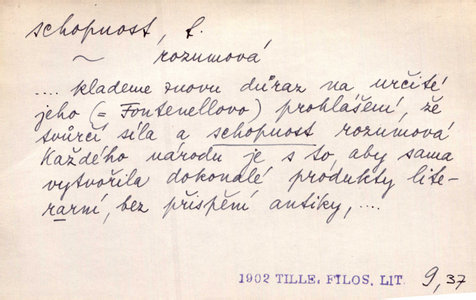 schopnost, f.
~ rozumová
.... klademe znovu důraz na určité
jeho (= Fontenellovo) prohlášení, že
tvůrčí síla a schopnost rozumová
každého národu je s to, aby sama
vytvořila dokonalé produkty lite-
rarní, bez přispění antiky, ....
1902 TILLE, FILOS. LIT. 9, 37